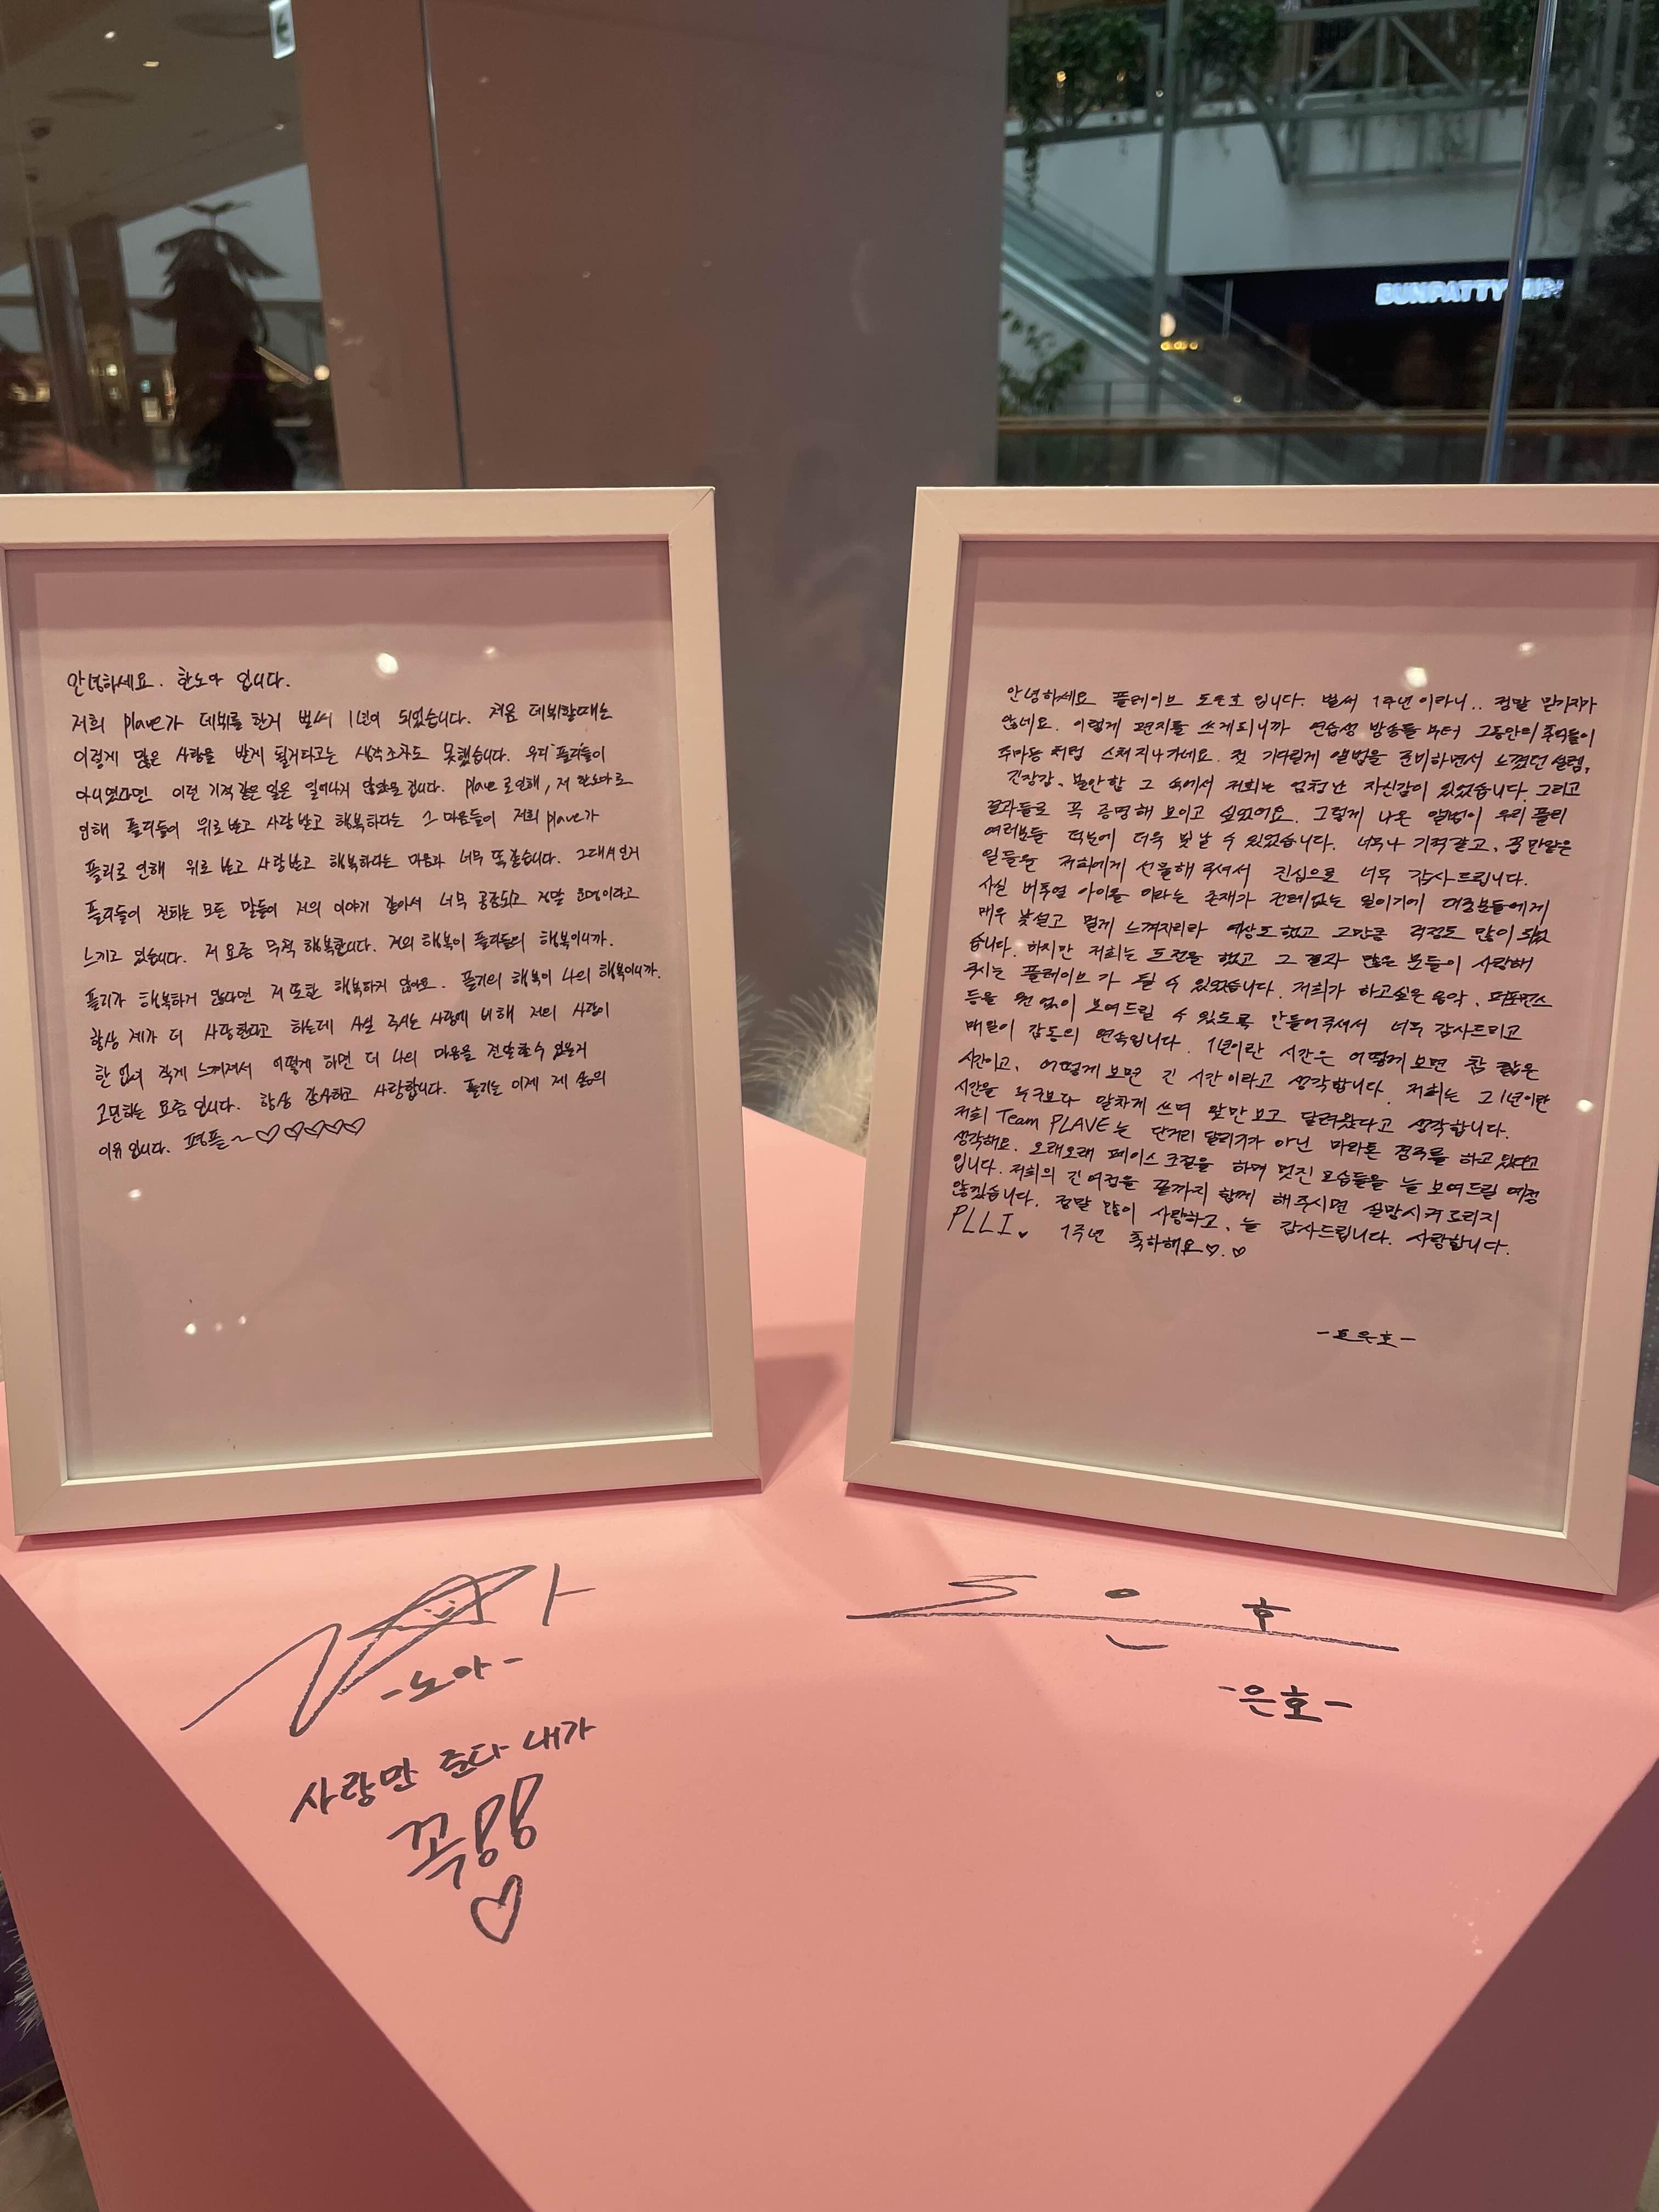 BUNPATTY
안녕하세요. 한노아 입니다.
저희 plave가 데뷔를 한거 벌써 1년이 되었습니다. 처음 데뷔할때는
이렇게 많은 사랑을 받게 될거라고는 생각조차도 못했습니다. 우리 플리들이
아니였다면 이런 기적같은 일은 일어나지 않았을 겁니다. plave로인해, 저 한노아로
인해 플리들이 위로받고 사랑받고 행복하다는 그 마음들이 저희 plave가
플리로 인해 위로 받고 사랑받고 행복하다는 마음과 너무 똑같습니다. 그래서인지
플리들이 전하는 모든 말들이 저의 이야기 같아서 너무 공감되고 정말 운명이라고
느끼고 있습니다. 저 요즘 무척 행복합니다. 저의 행복이 플리들의 행복이니까.
플리가 행복하지 않다면 저 또한 행복하지 않아요. 플리의 행복이 나의 행복이니까.
항상 제가 더 사랑한다고 하는데 사실 주시는 사랑에 비해 저의 사랑이
한 없이 작게 느껴져서 어떻게 하면 더 나의 마음을 전달할수 있을지
고민하는 요즘 입니다. 항상 감사하고 사랑합니다. 플리는 이제 제 삶의
이유 입니다. 평플~♡♡♡♡♡
안녕하세요 플레이브 도은호 입니다. 벌써 1주년 이라니.. 정말 믿기지가
않네요. 이렇게 편지를 쓰게되니까 연습생 방송들 부터 그동안의 추억들이
주마등 처럼 스쳐 지나가네요. 첫 기다림게 앨범을 준비하면서 느꼈던 설렘,
긴장감, 불안함 그 속에서 저희는 엄청난 자신감이 있었습니다. 그리고
결과들로 꼭 증명해 보이고 싶었어요. 그렇게 나온 앨범이 우리 플리
여러분들 덕분에 더욱 빛날 수 있었습니다. 너무나 기적같고, 꿈만같은
일들을 저희에게 선물해 주셔서 진심으로 너무 감사드립니다.
사실 버추얼 아이돌 이라는 존재가 전례없는 일이기에 대중분들에게
매우 낯설고 멀게 느껴지리라 예상도 했고 그만큼 걱정도 많이 되었
습니다. 하지만 저희는 도전을 했고 그 결과 많은 분들이 사랑해
주시는 플레이브가 될 수 있었습니다. 저희가 하고싶은 음악, 퍼포먼스
등을 원 없이 보여드릴 수 있도록 만들어주셔서 너무 감사드리고
매일이 감동의 연속입니다. 1년이란 시간은 어떻게 보면 참 짧은
시간이고, 어떻게 보면 긴 시간이라고 생각합니다. 저희는 그 1년이란
시간을 누구보다 알차게 쓰며 앞만 보고 달려왔다고 생각합니다.
저희 Team PLAVE는 단거리 달리기가 아닌 마라톤 경주를 하고 있다고
생각해요. 오래오래 페이스 조절을 하며 멋진 모습들을 늘 보여드릴 예정
입니다. 저희의 긴 여정을 끝까지 함께 해주시면 실망시켜 드리지
않겠습니다. 정말 많이 사랑하고, 늘 감사드립니다. 사랑합니다.
PLLI♥ 1주년 축하해요♡.♡
-도은호-
-노아-
사랑만 준다 내가
꼭!!
♡
도은호
-은호-